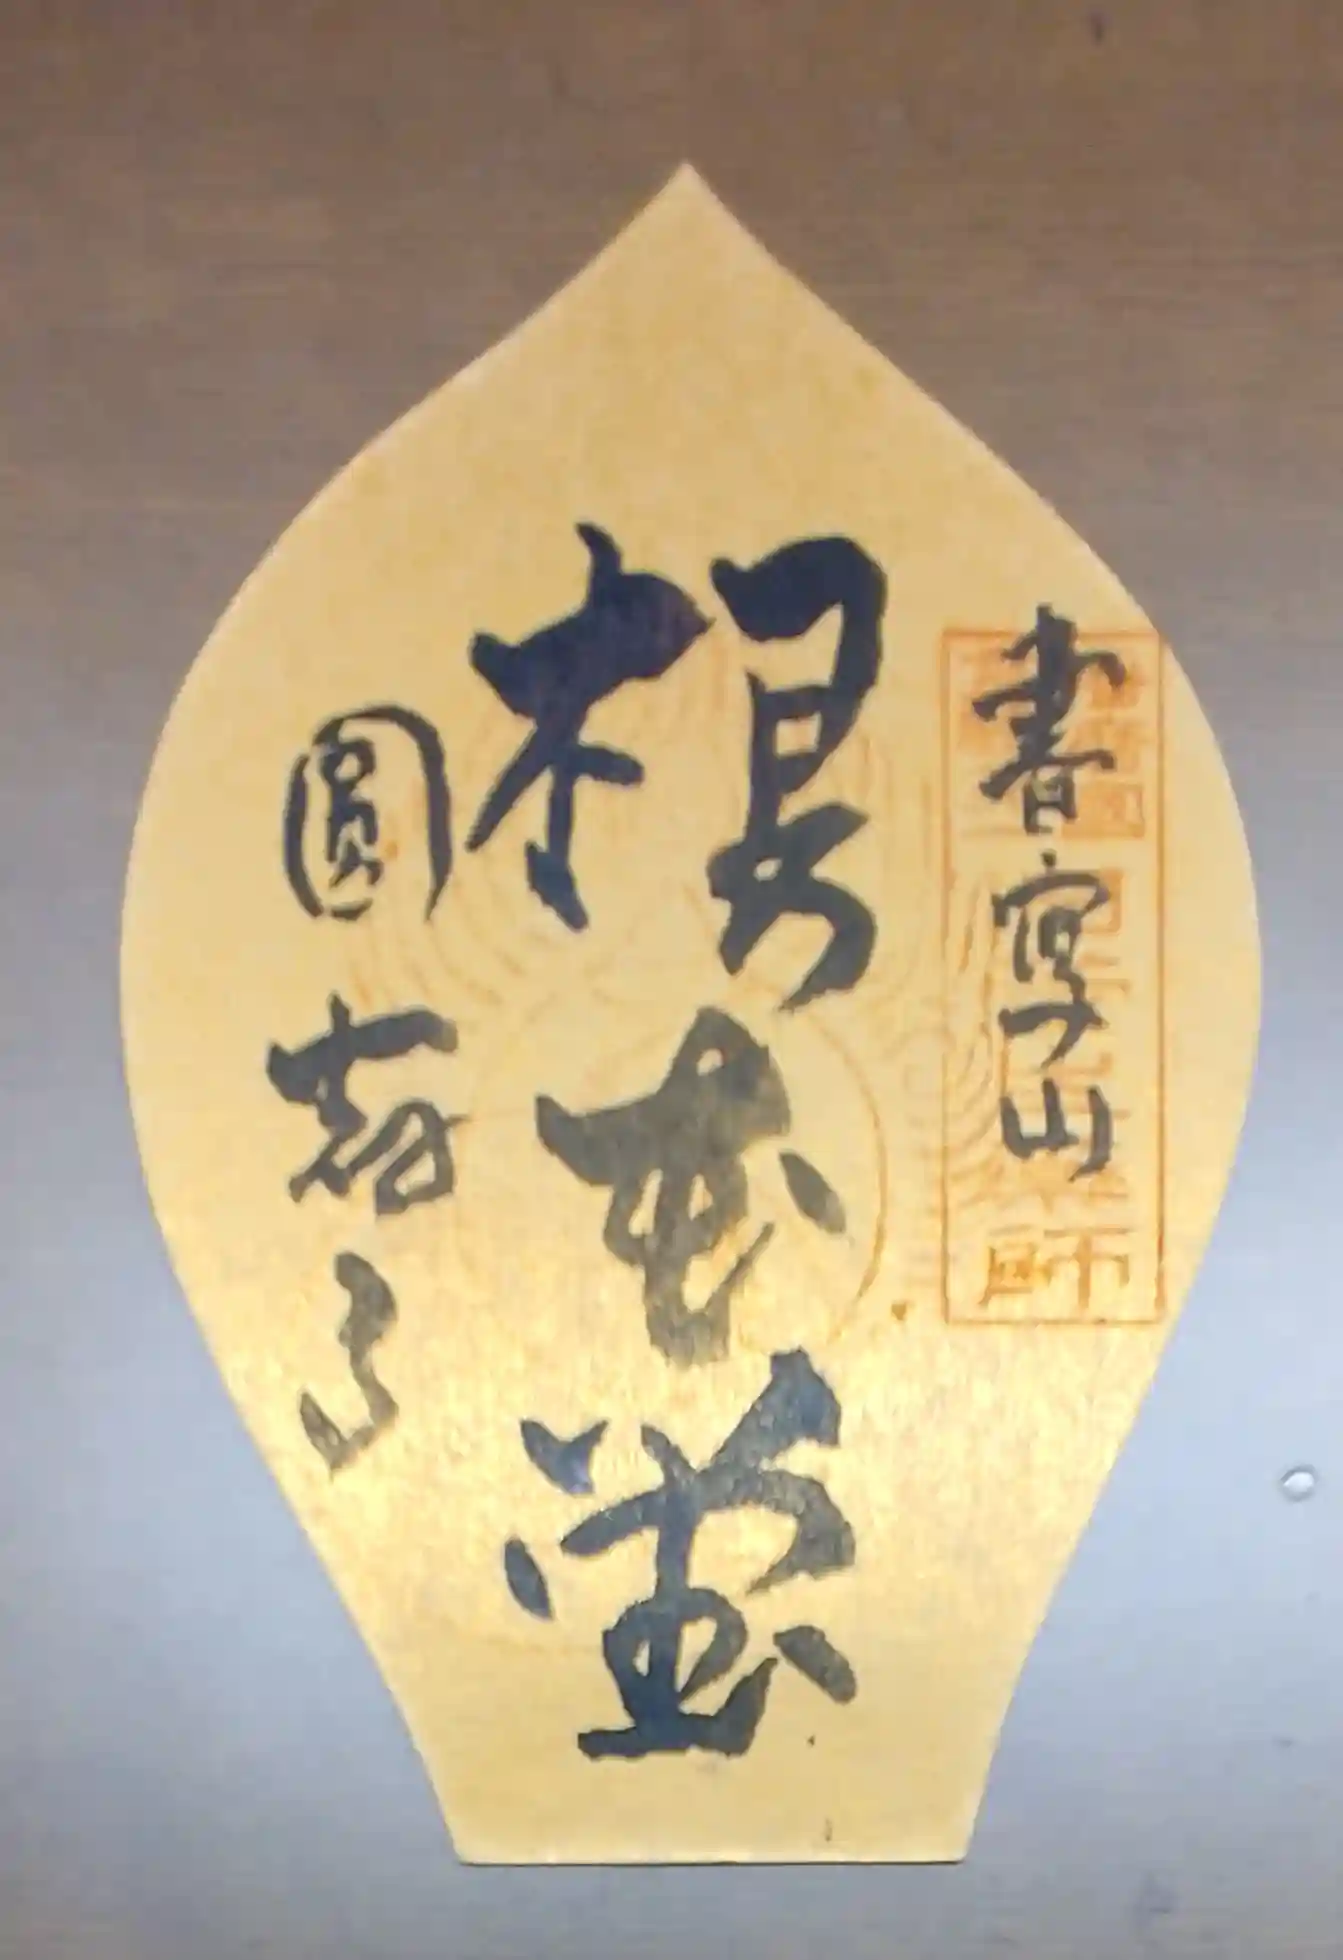 書寫山
根本堂
圓教寺
師